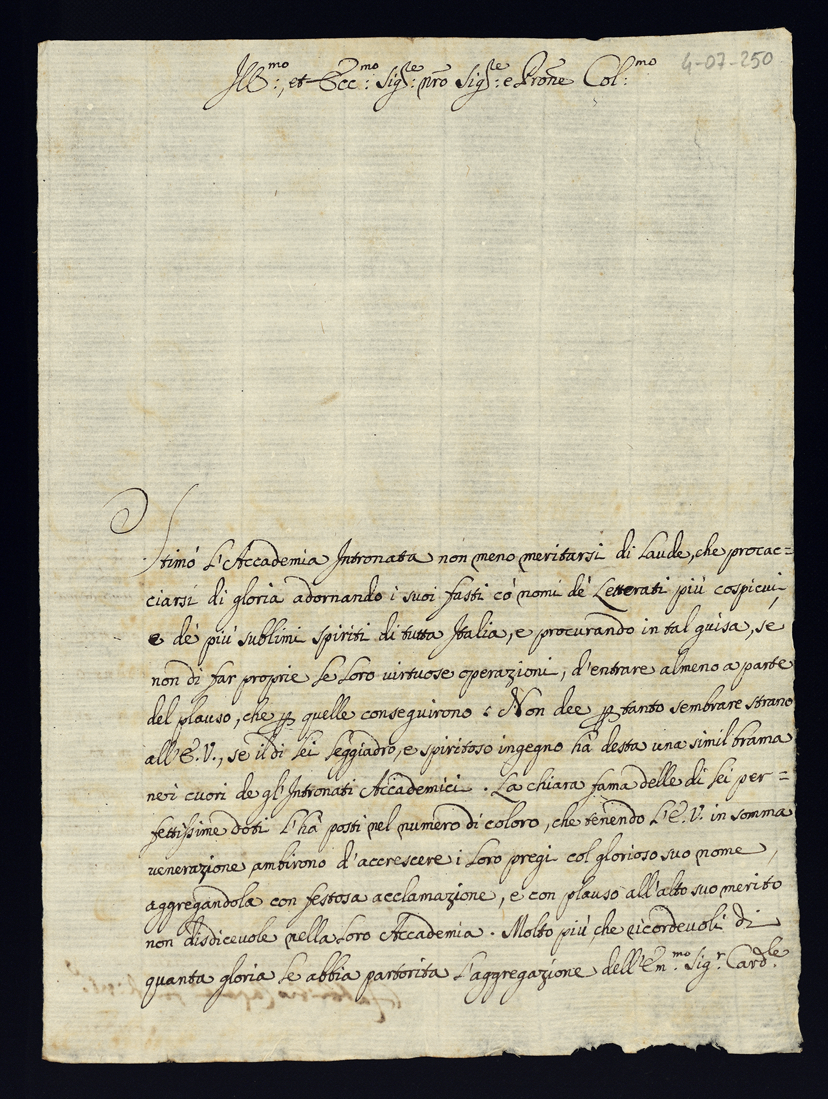 4-07-250
Ill:mo, et Ecc:mo Sig:re nro Sig:re e Prone Col:mo
Stimò l'Accademia Intronata non meno meritarsi di laude, che procac=
ciarsi di gloria adornando i suoi fasti có nomi dé Letterati più cospicui,
e dé più sublimi spiriti di tutta Italia, e procurando in tal guisa, se
non di far proprie le loro virtuose operazioni, d'entrare almeno a parte
del plauso, che p quelle conseguirono: Non dee p tanto sembrare strano
all'E.V., se il di lei leggiadro, e spiritoso ingegno hà desta una simil brama
nei cuori de gl'Intronati Accademici. La chiara fama delle di lei per=
fettissime doti l'hà posti nel numero di coloro, che tenendo l'E.V. in somma
venerazione ambirono d'accrescere i loro pregi col glorioso suo nome,
aggregandola con festosa acclamazione, e con plauso all'alto suo merito
non disdicevole nella loro Accademia. Molto più, che ricordevoli di
quanta gloria le abbia partorita l'aggregazione dell'Em:mo Sig:r Card:le